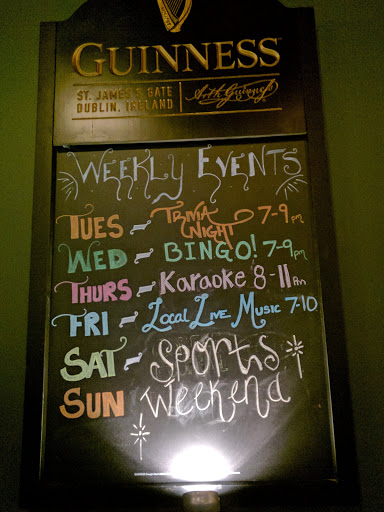 GUINNESS
ST. JAMES'S GATE
DUBLIN, IRELAND
Arth Guinness
WEEKLY EVENTS
TUES - TRIVIA NIGHT 7-9pm
WED - BINGO! 7-9pm
THURS - Karaoke 8-11pm
FRI - Local Live Music 7-10
SAT - Sports
SUN Weekend